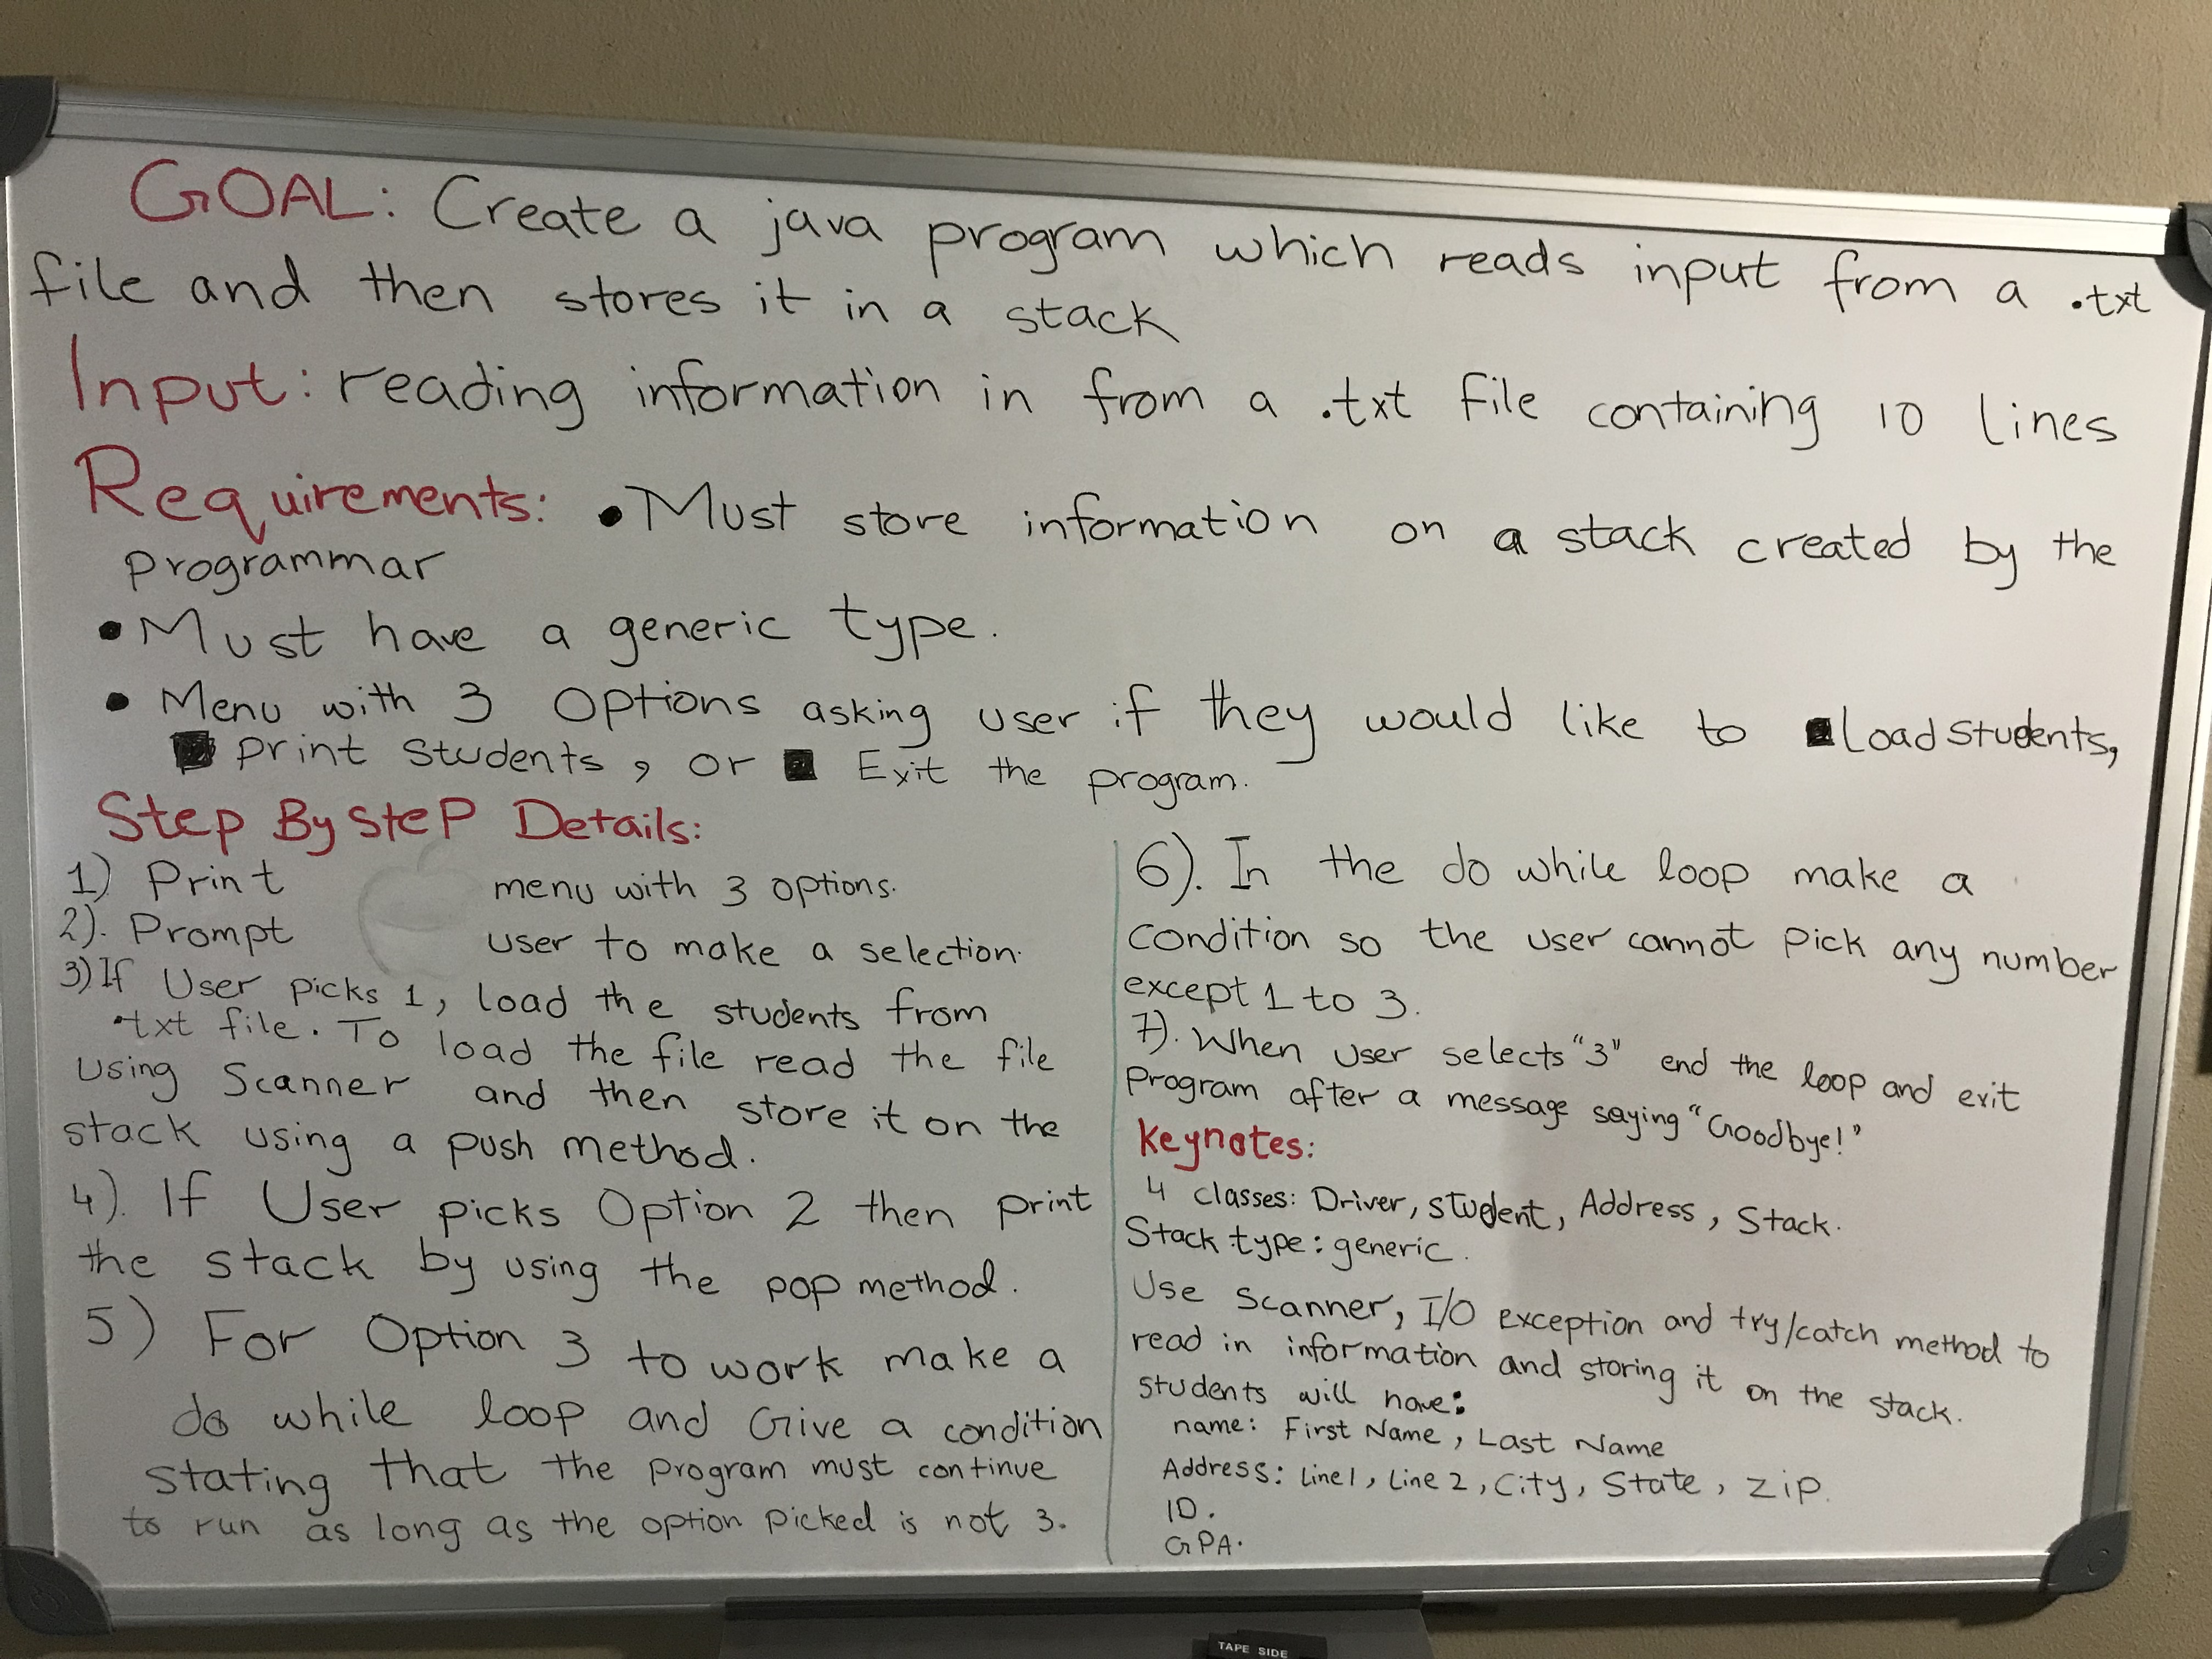 GOAL: Create a java program which reads input from a .txt
file and then stores it in a stack
Input: reading information in from a .txt file containing 10 lines
Requirements: • Must store information on a stack created by the
programmar
• Must have a generic type.
• Menu with 3 options asking user if they would like to ■ Load students,
■ print students, or ■ Exit the program.
Step By Step Details:
1) Print menu with 3 options.
2). Prompt user to make a selection.
3) If User picks 1, load the students from
.txt file. To load the file read the file
using Scanner and then store it on the
stack using a push method.
4). If User picks Option 2 then print
the stack by using the pop method.
5) For Option 3 to work make a
do while loop and Give a condition
stating that the program must continue
to run as long as the option picked is not 3.
6). In the do while loop make a
condition so the user cannot pick any number
except 1 to 3.
7). When user selects "3" end the loop and exit
program after a message saying "Goodbye!"
Keynotes:
4 classes: Driver, student, Address, Stack.
Stack type: generic.
Use scanner, I/O exception and try/catch method to
read in information and storing it on the stack.
students will have:
name: First Name, Last Name
Address: Line1, Line 2, City, State, Zip.
ID.
GPA.
TAPE SIDE